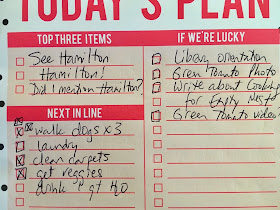 TODAY'S PLAN
TOP THREE ITEMS
See Hamilton
Hamilton!
Did I mention Hamilton?
NEXT IN LINE
walk dogs x3
laundry
clean carpets
get veggies
drink qt H2O
IF WE'RE LUCKY
Library orientation
Green Tomato Photo
Write about Cooking
for Empty Nester
Green Tomato video